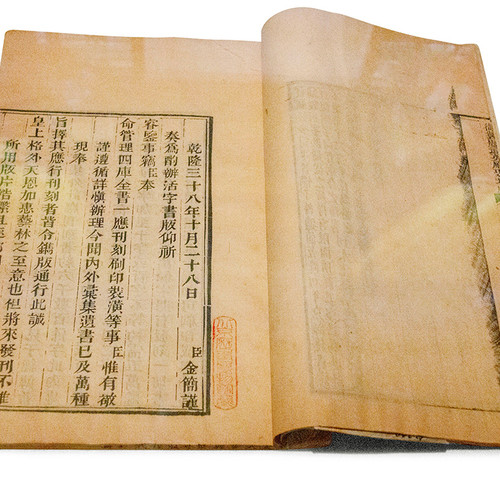 乾隆三十八年十月二十八日臣金簡謹
奏為酌辦活字書版仰祈
睿鑒事竊臣奉
命管理四庫全書一應刊刻刷印裝潢等事臣惟有敬
謹遵循詳慎辦理今聞內外彙集遺書已及萬種
現奉
旨擇其應行刊刻者皆令鐫版通行此誠
皇上格外天恩加惠藝林之至意也但將來發刊不惟
所用版片浩繁且